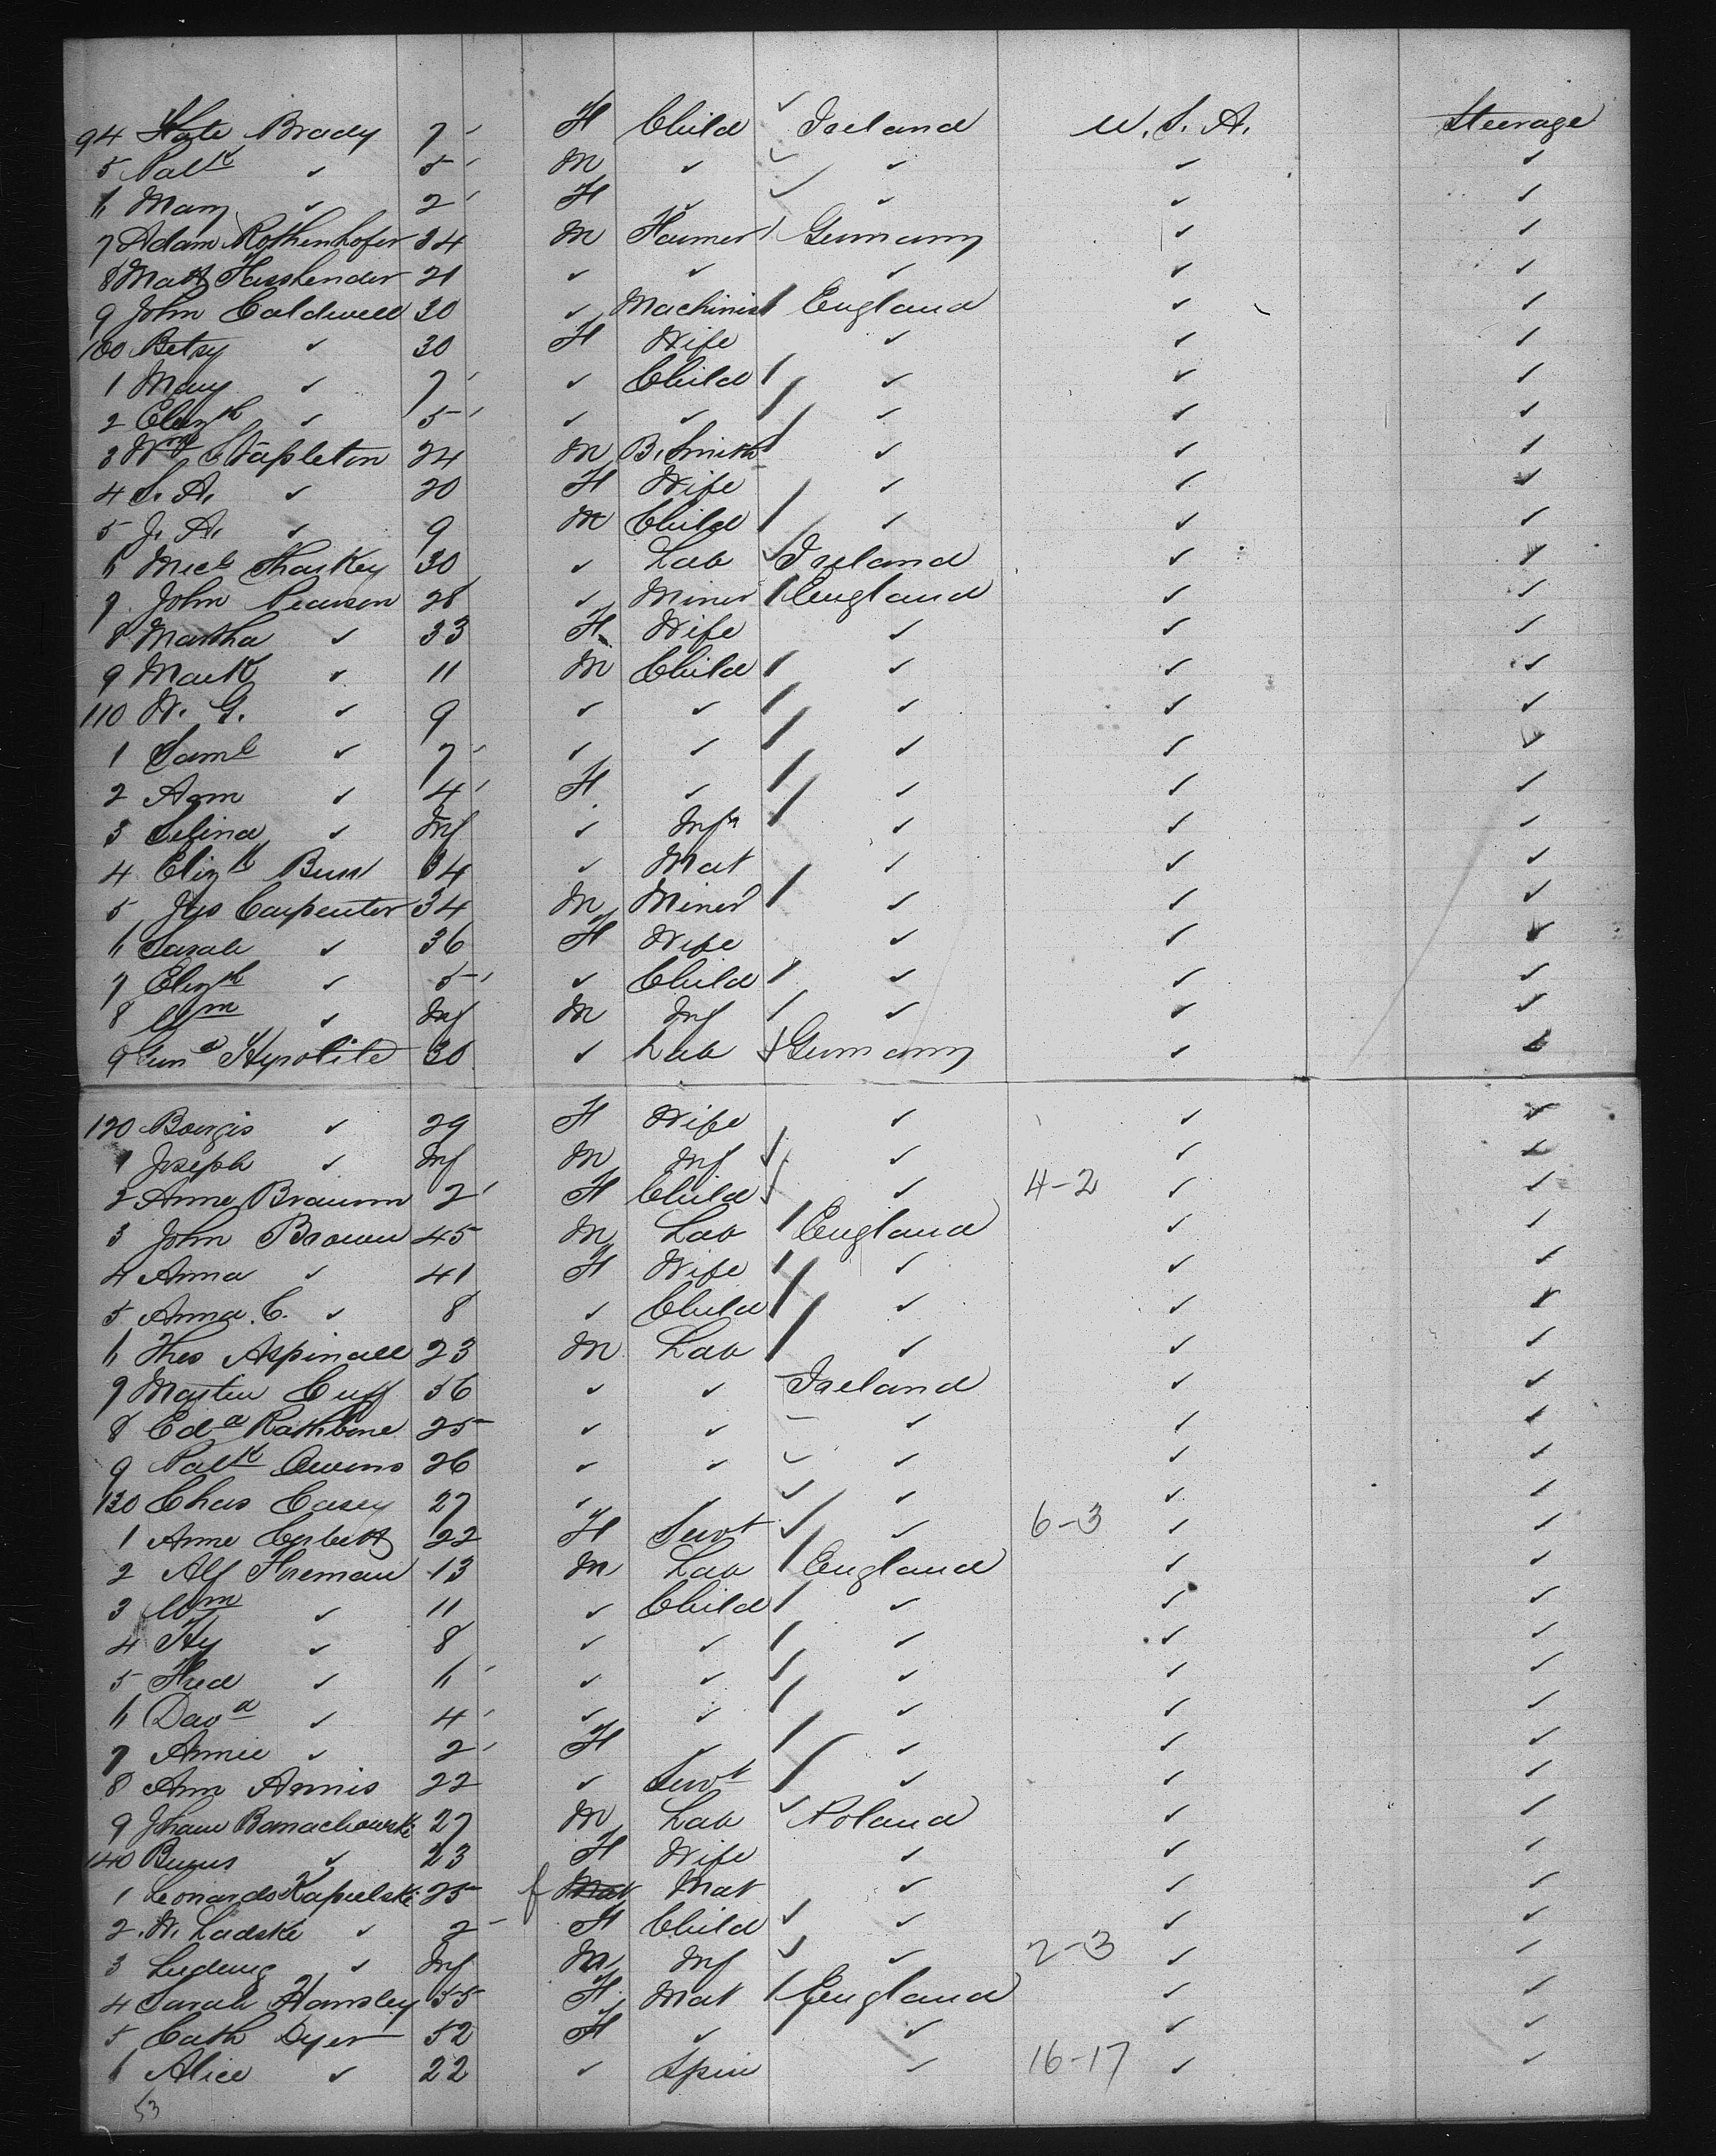 94 Kate Brady 7 F Child ✓ Ireland U.S.A. Steerage
5 Patk ✓ 5 M ✓ ✓ ✓ ✓ ✓
6 Mary ✓ 2 F ✓ ✓ ✓ ✓ ✓
7 Adam Rothenhofer 34 M Farmer Germany ✓ ✓
8 Matt 21 ✓ ✓ ✓ ✓ ✓
9 John Caldwell 30 ✓ Machinist England ✓ ✓
100 Betsy ✓ 30 F Wife ✓ ✓ ✓
1 Mary ✓ 7 ✓ Child ✓ ✓ ✓
2 Elizth ✓ 5 ✓ ✓ ✓ ✓ ✓
3 Wm Stapleton 24 M B. Smith ✓ ✓ ✓
4 S. A. ✓ 20 F Wife ✓ ✓ ✓
5 J. A. ✓ 9 M Child ✓ ✓ ✓
6 Micl Sharkey 30 ✓ Lab ✓ Ireland ✓ ✓
7 John Pearson 28 ✓ Miner England ✓ ✓
8 Martha ✓ 33 F Wife ✓ ✓ ✓
9 Mark ✓ 11 M Child ✓ ✓ ✓
110 W. G. ✓ 9 ✓ ✓ ✓ ✓ ✓
1 Saml ✓ 7 ✓ ✓ ✓ ✓ ✓
2 Ann ✓ 4 F ✓ ✓ ✓ ✓
3 Selina ✓ Inf ✓ Infn ✓ ✓ ✓
4 Elizth 34 ✓ Mat ✓ ✓ ✓
5 Carpenter 34 M Miner ✓ ✓ ✓
6 Sarah ✓ 36 F Wife ✓ ✓ ✓
7 Elizth ✓ 5 ✓ Child ✓ ✓ ✓
8 Wm ✓ Inf M Inf ✓ ✓ ✓
9 Hypolite 30 ✓ Lab Germany ✓ ✓
120 ✓ 29 F Wife ✓ ✓ ✓
1 Joseph ✓ Inf M Inf ✓ ✓ ✓ ✓
2 Anne Braunn 2 F Child ✓ ✓ 4-2 ✓ ✓
3 John Brown 45 M Lab England ✓ ✓
4 Anna ✓ 41 F Wife ✓ ✓ ✓
5 Anna. C. ✓ 8 ✓ Child ✓ ✓ ✓
6 Thos Aspinall 23 M Lab ✓ ✓ ✓
7 Martin Cuff 36 ✓ ✓ Ireland ✓ ✓
8 Edd Rathbone 25 ✓ ✓ ✓ ✓ ✓
9 Patk Owens 26 ✓ ✓ ✓ ✓ ✓ ✓
130 Chas Casey 27 ✓ ✓ ✓ ✓ ✓ ✓
1 Anne Corbett 22 F Servt ✓ ✓ 6-3 ✓ ✓
2 Alf Foreman 13 M Lab England ✓ ✓
3 Wm ✓ 11 ✓ Child ✓ ✓ ✓
4 Hy ✓ 8 ✓ ✓ ✓ ✓ ✓
5 Fred ✓ 6 ✓ ✓ ✓ ✓ ✓
6 Davd ✓ 4 ✓ ✓ ✓ ✓ ✓
7 Annie ✓ 2 F ✓ ✓ ✓ ✓
8 Ann Annis 22 ✓ Servt ✓ ✓ ✓
9 Johann Banachowski 27 M Lab ✓ Poland ✓ ✓
140 ✓ 23 F Wife ✓ ✓ ✓
1 Leonardo Kapielski 25 f Mat Mat ✓ ✓ ✓
2 W. Ladski ✓ 2 F Child ✓ ✓ ✓ ✓
3 ✓ Inf M Inf ✓ ✓ 2-3 ✓ ✓
4 Sarah Hansley 55 F Mat England ✓ ✓
5 Cath Dyer 52 F ✓ ✓ ✓ ✓
6 Alice ✓ 22 ✓ Spin ✓ 16-17 ✓ ✓
53